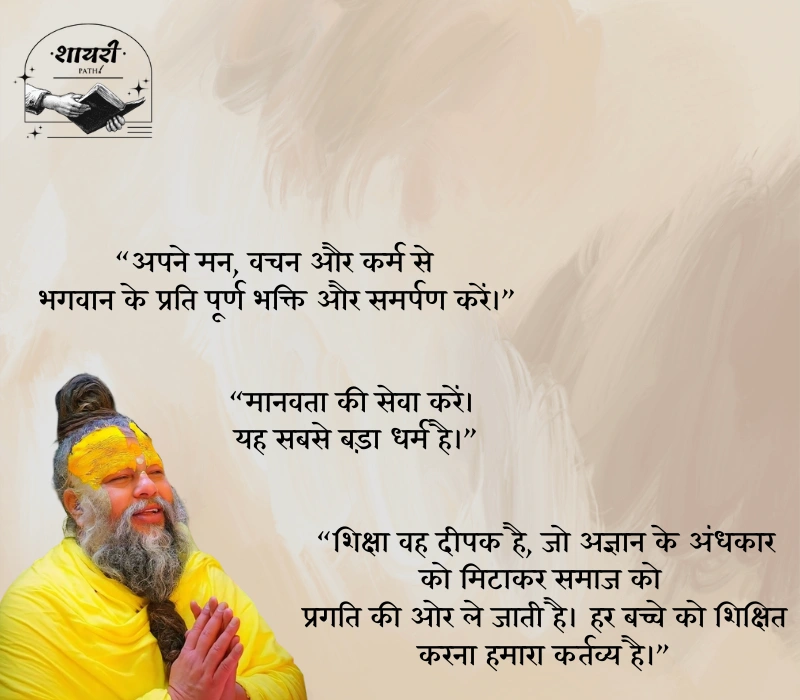 शायरी
PATH
“अपने मन, वचन और कर्म से
भगवान के प्रति पूर्ण भक्ति और समर्पण करें।”
“मानवता की सेवा करें।
यह सबसे बड़ा धर्म है।”
“शिक्षा वह दीपक है, जो अज्ञान के अंधकार
को मिटाकर समाज को
प्रगति की ओर ले जाती है। हर बच्चे को शिक्षित
करना हमारा कर्तव्य है।”